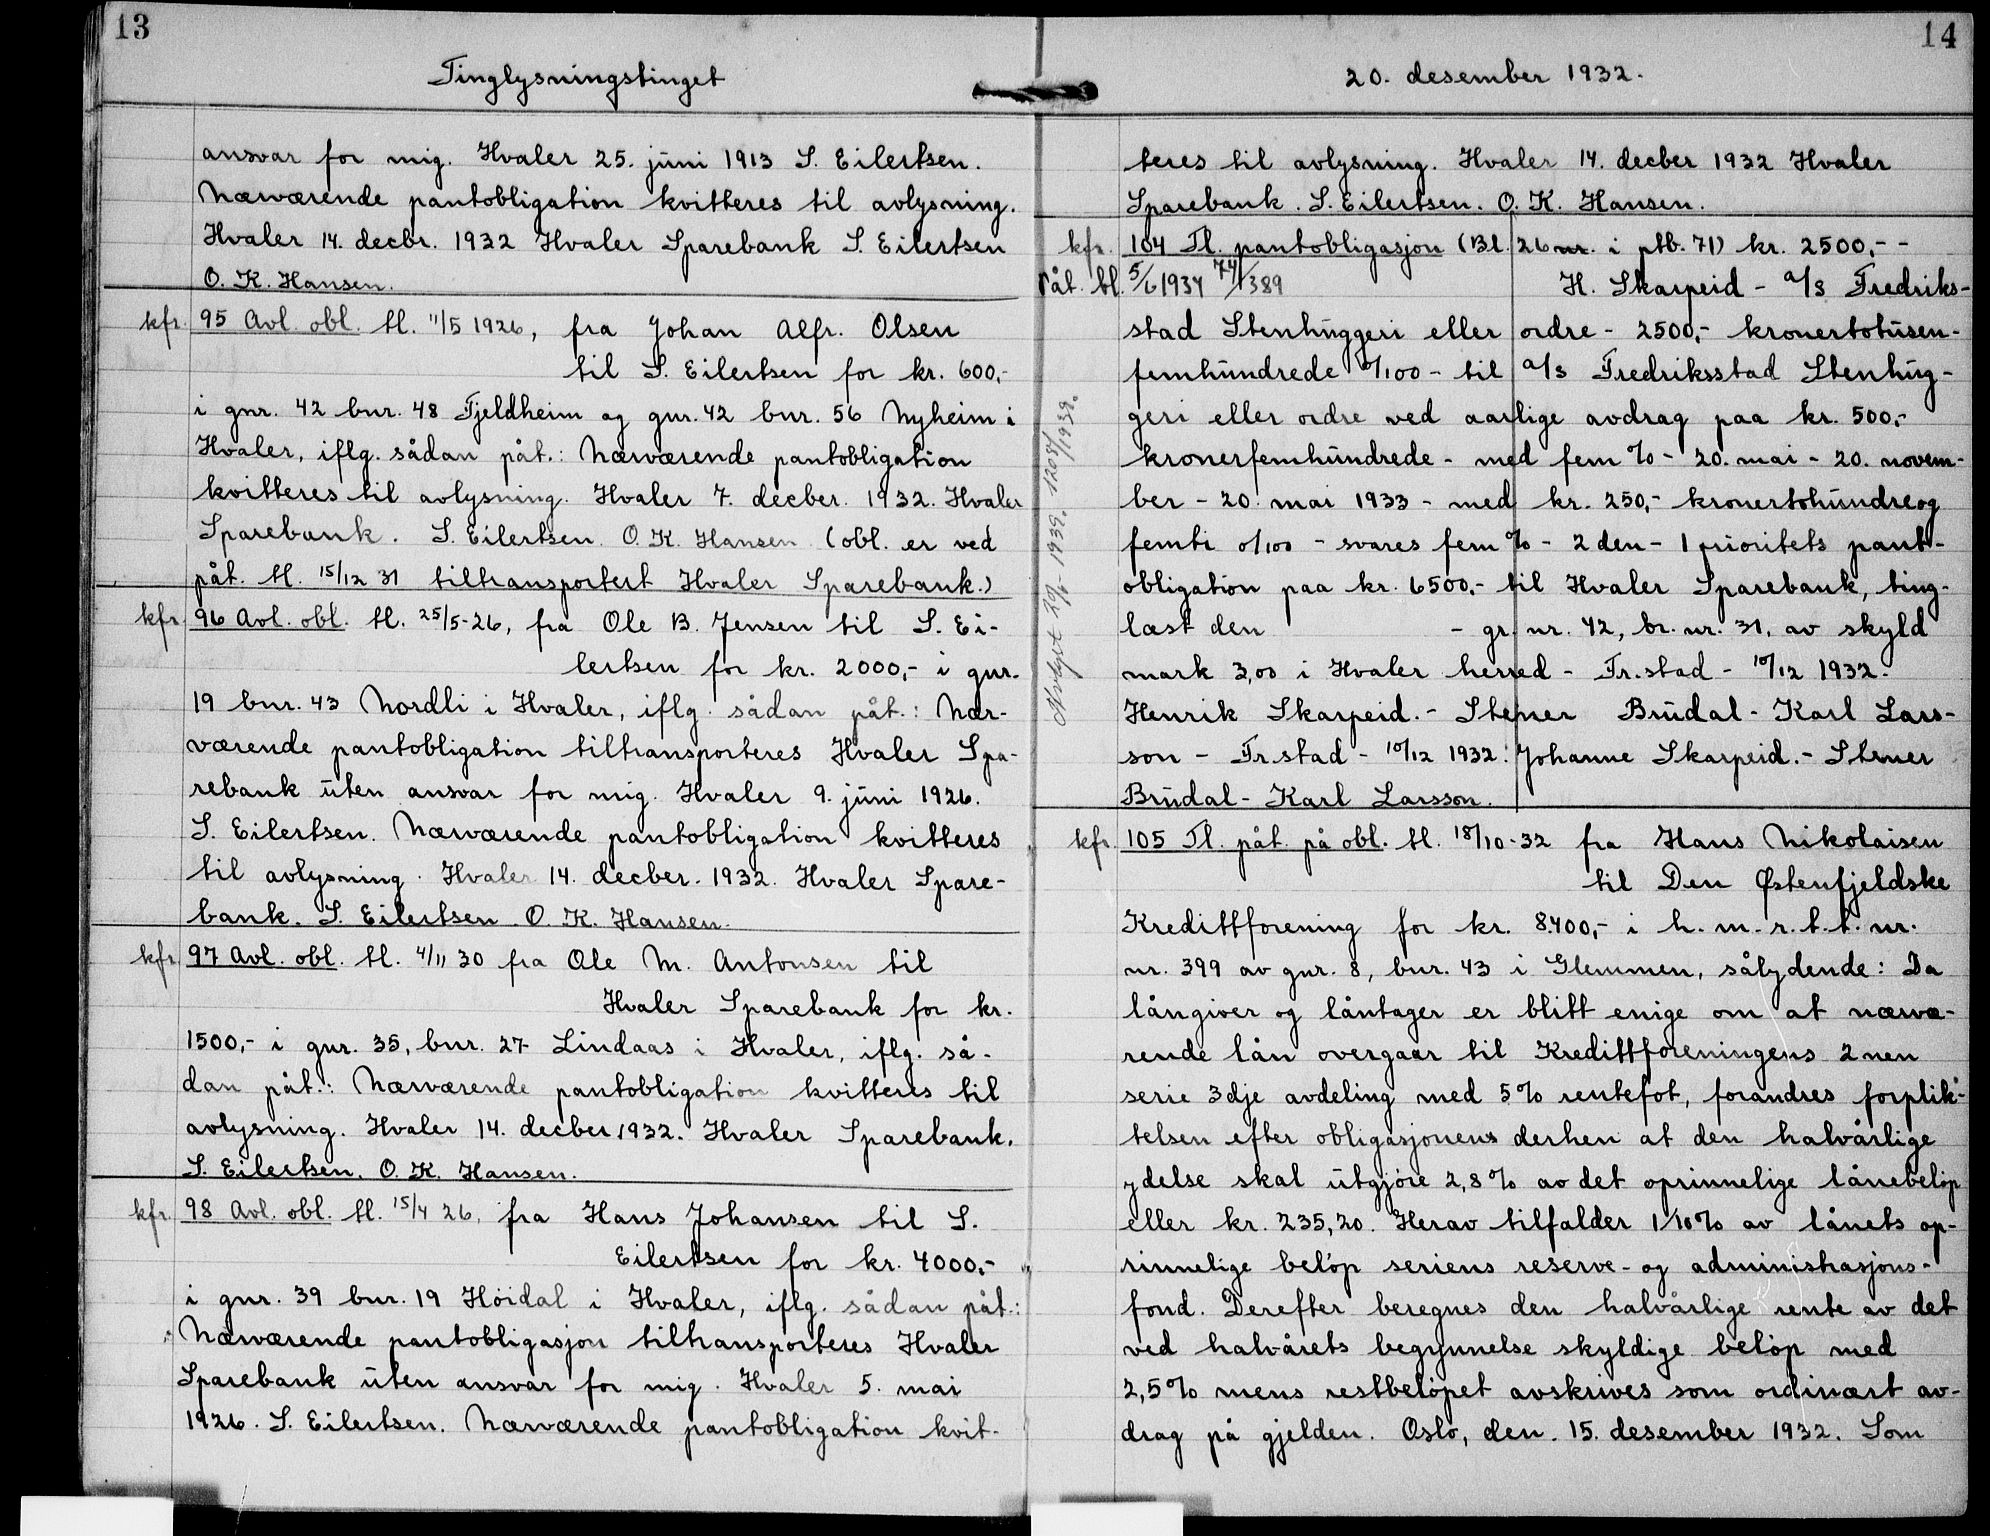 13
Tinglysningstinget
ansvar for mig. Hvaler 25. juni 1913 S. Eilertsen.
Nærværende pantobligation kvitteres til avlysning.
Hvaler 14. decbr. 1932 Hvaler Sparebank S. Eilertsen
O. K. Hansen.
kfr. 95 Avl. obl. tl. 11/5 1926, fra Johan Alfr. Olsen
til S. Eilertsen for kr. 600,-
i gnr. 42 bnr. 48 Fjeldheim og gnr. 42 bnr. 56 Nyheim i
Hvaler, iflg. sådan påt.: Nærværende pantobligation
kvitteres til avlysning. Hvaler 7. decber. 1932. Hvaler
Sparebank. S. Eilertsen O. K. Hansen (obl. er ved
påt. tl. 15/12 31 tiltransportert Hvaler Sparebank.)
kfr. 96 Avl. obl. tl. 25/5-26, fra Ole B. Jensen til S. Ei-
lertsen for kr. 2000,- i gnr.
19 bnr. 43 Nordli i Hvaler, iflg. sådan påt.: Nær-
værende pantobligation tiltransporteres Hvaler Spa-
rebank uten ansvar for mig. Hvaler 9. juni 1926.
S. Eilertsen. Nærværende pantobligation kvitteres
til avlysning. Hvaler 14. decber. 1932. Hvaler Spare-
bank. S. Eilertsen. O. K. Hansen.
kfr. 97 Avl. obl. tl. 4/11 30 fra Ole M. Antonsen til
Hvaler Sparebank for kr.
1500,- i gnr. 35, bnr. 27 Lindaas i Hvaler, iflg. så-
dan påt.: Nærværende pantobligation kvitteres til
avlysning. Hvaler 14. decber 1932. Hvaler Sparebank.
S. Eilertsen. O. K. Hansen.
kfr. 98 Avl. obl. tl. 15/4 26, fra Hans Johansen til S.
Eilertsen for kr. 4000,-
i gnr. 39 bnr. 19 Höidal i Hvaler, iflg. sådan påt.:
Nærværende pantobligasjon tiltransporteres Hvaler
Sparebank uten ansvar for mig. Hvaler 5. mai
1926. S. Eilertsen. Nærværende pantobligation kvit-
14
20. desember 1932.
teres til avlysning. Hvaler 14. decber 1932 Hvaler
Sparebank. S. Eilertsen. O. K. Hansen.
kfr. 104 Tl. pantobligasjon (Bl. 26 nr. i ptb. 71) kr. 2500,--
Påt. bl. 5/6 1934 74/389 H. Skarpeid - A/S Fredriks-
stad Stenhuggeri eller ordre - 2500,- kronertotusen-
femhundrede 0/100 - til A/S Fredriksstad Stenhug-
geri eller ordre ved aarlige avdrag paa kr. 500,-
kronerfemhundrede - med fem % - 20. mai - 20. novem-
ber - 20. mai 1933 - med kr. 250,- kronertohundreog
femti 0/100 - svares fem % - 2 den - 1 prioritets pant-
obligation paa kr. 6500.- til Hvaler Sparebank, ting-
læst den - gr. nr. 42, br. nr. 31, av skyld
mark 3,00 i Hvaler herred - Fr.stad - 10/12 1932.
Henrik Skarpeid. - Stener Brudal - Karl Lars-
son - Fr.stad - 10/12 1932: Johanne Skarpeid. - Stener
Brudal - Karl Larsson.
kfr. 105 Tl. påt. på obl. tl. 18/10-32 fra Hans Nikolaisen
til Den Østenfjeldske
Kredittforening for kr. 8.400,- i h. m. r. t. t. nr.
nr. 399 av gnr. 8, bnr. 43 i Glemmen, sålydende: Da
långiver og låntager er blitt enige om at nærvæ-
rende lån overgaar til Kredittforeningens 2nen
serie 3dje avdeling med 5% rentefot, forandres forplik-
telsen efter obligasjonens derhen at den halvårlige
ydelse skal utgjöre 2,8% av det oprinnelige lånebelöp
eller kr. 235,20. Herav tilfalder 1/10% av lånets op-
rinnelige belöp seriens reserve- og administrasjons-
fond. Derefter beregnes den halvårlige rente av det
ved halvårets begynnelse skyldige belöp med
2,5% mens restbelöpet avskrives som ordinært av-
drag på gjelden. Oslo, den. 15. desember 1932. Som